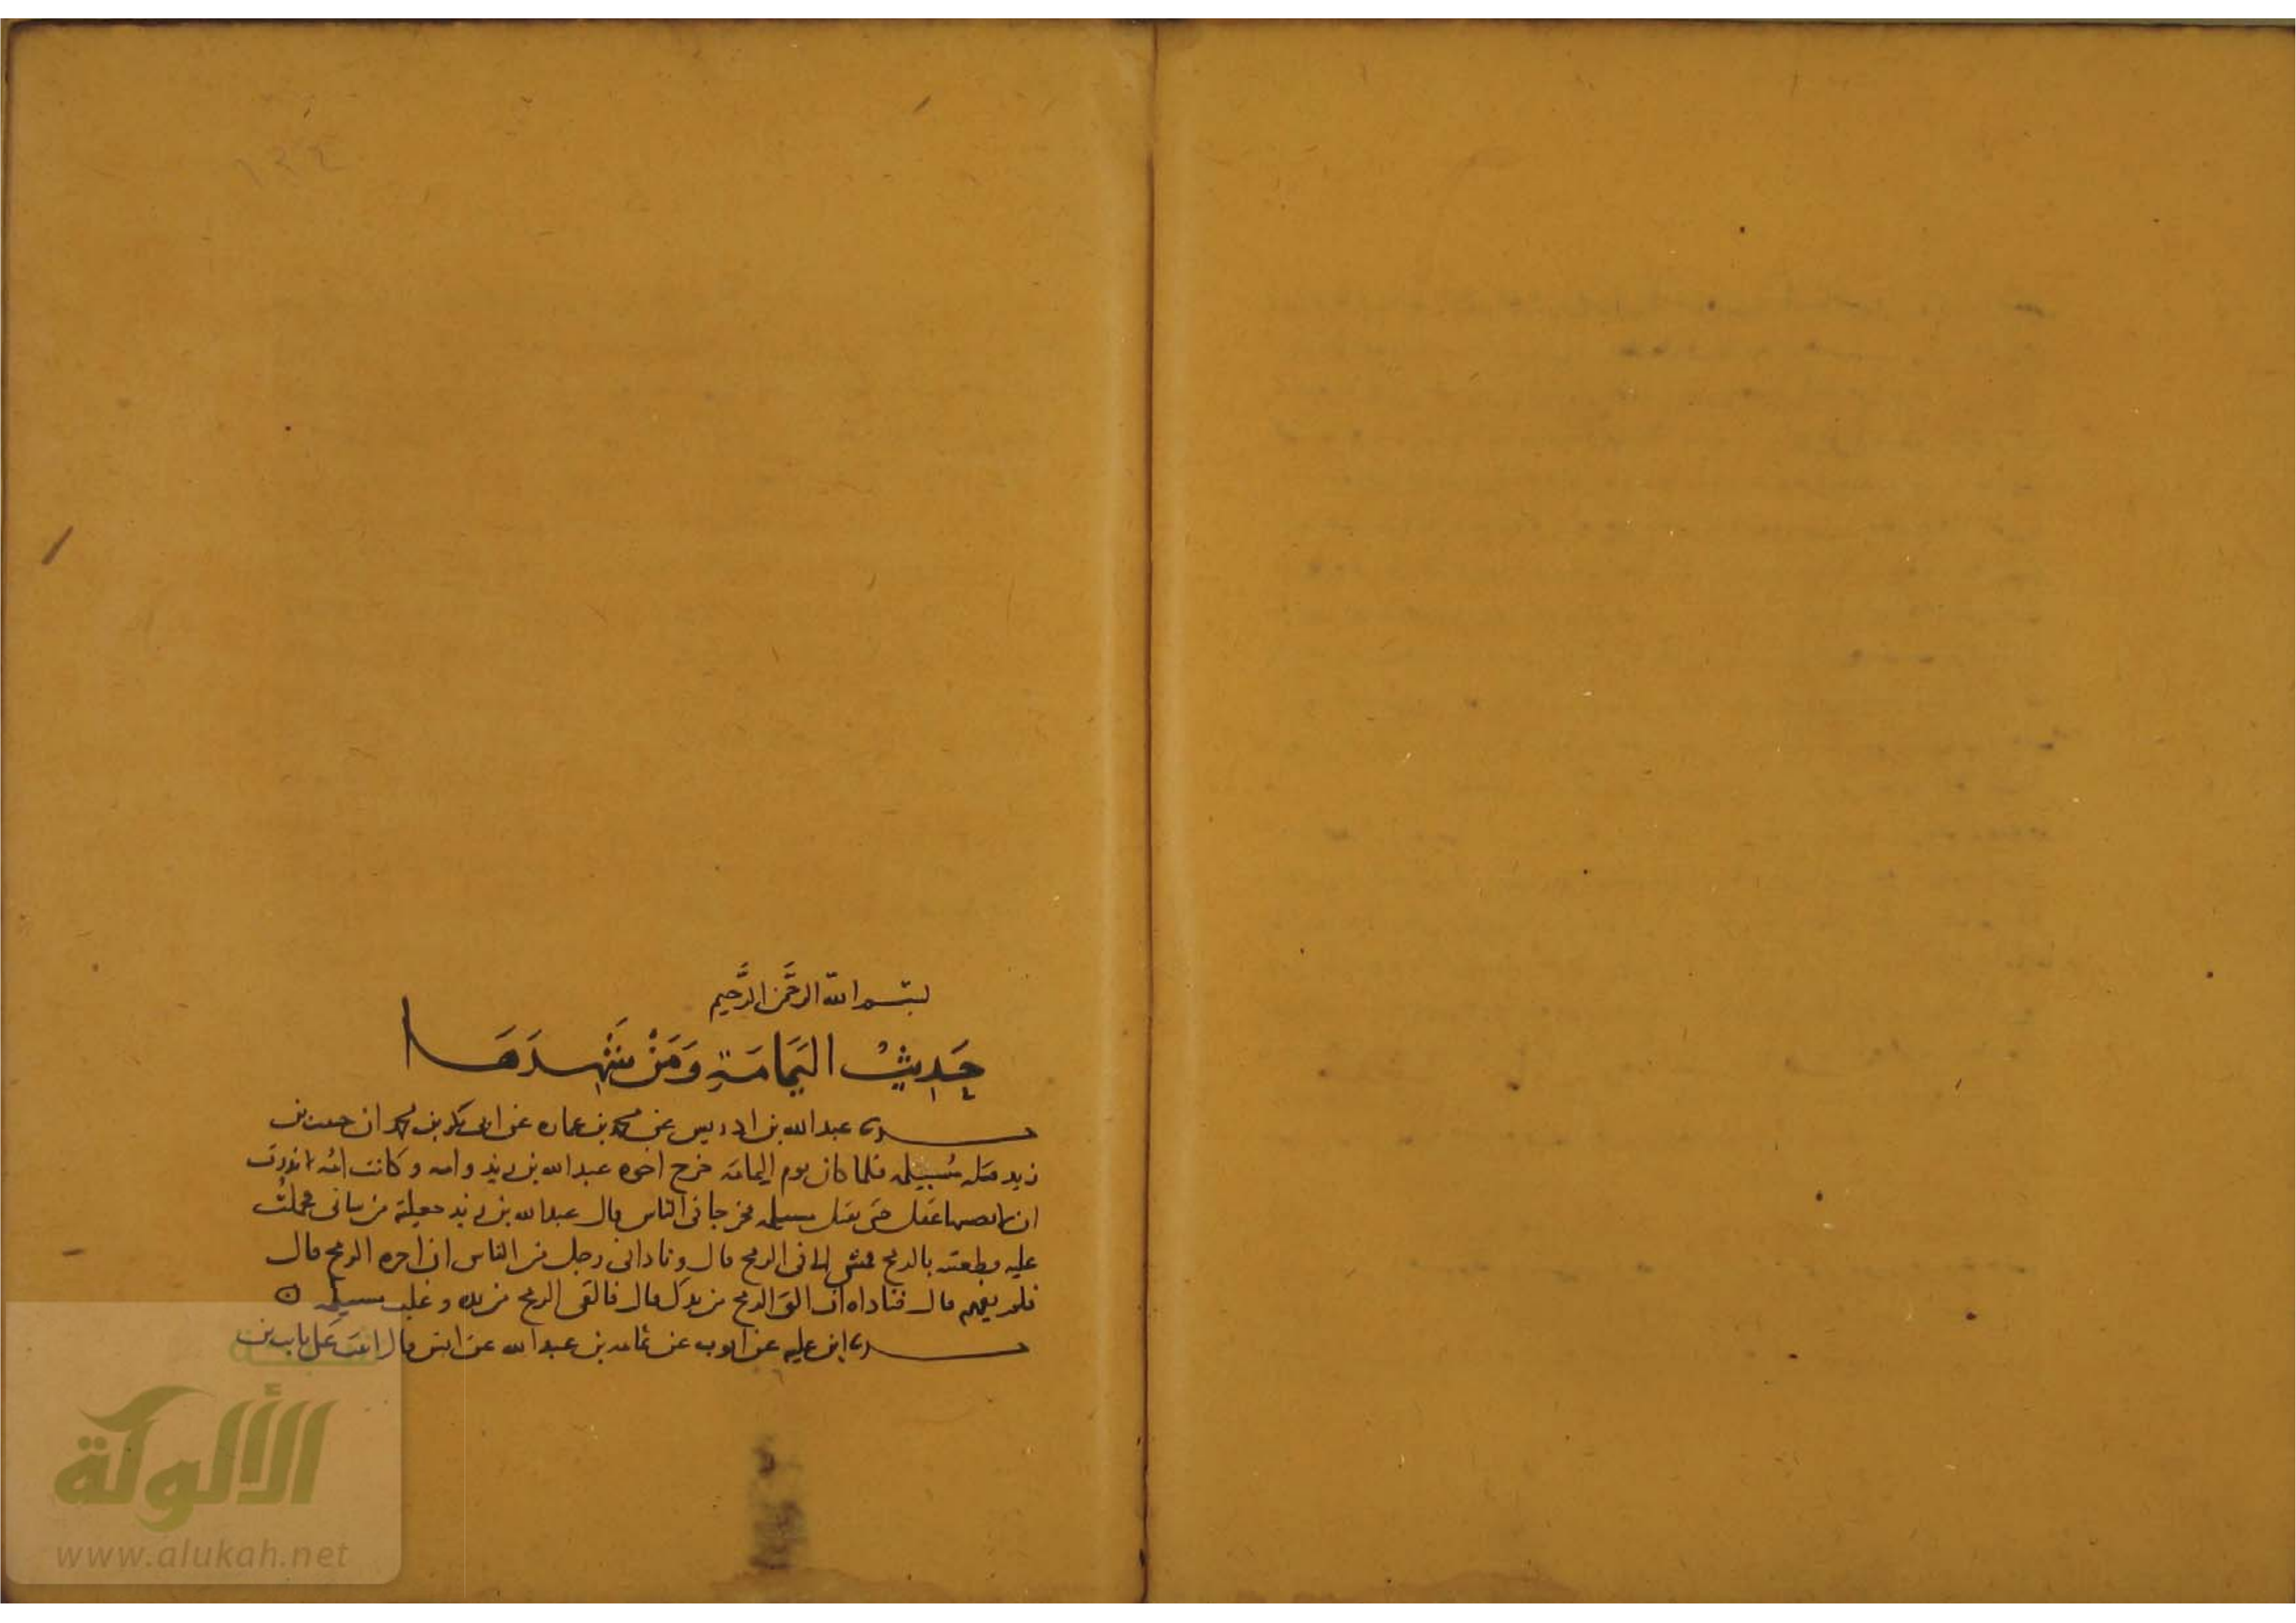 ١٤٤
بسم الله الرحمن الرحيم
حَدِيثُ اليَمَامَةِ وَمَنْ شَهِدَهَا
حدثنا عبدالله بن ادريس عن محمد بن عماره عن ابى بكر بن محمد ان حبيب بن
زيد قتله مُسَيلمه فلما كان يوم اليمامة خرج اخوه عبدالله بن زيد وامه وكانت امه نذرت
ان لا يصيبها غسل حتى يقتل مسيلمه فخرجا فى الناس قال عبدالله بن زيد جعلته من شانى فحملتُ
عليه فطعنته بالرمح فمشى الى فى الرمح قال ونادانى رجل من الناس ان اجره الرمح قال
فلم يفهم قال فناداه ان الق الرمح من يدك قال فالقى الرمح من يده وغلب مسيلمه ه
حدثنا ابن عليه عن ايوب عن ثمامه بن عبدالله عن انس قال اتيت على ثابت بن
شبكة
الألوكة
www.alukah.net